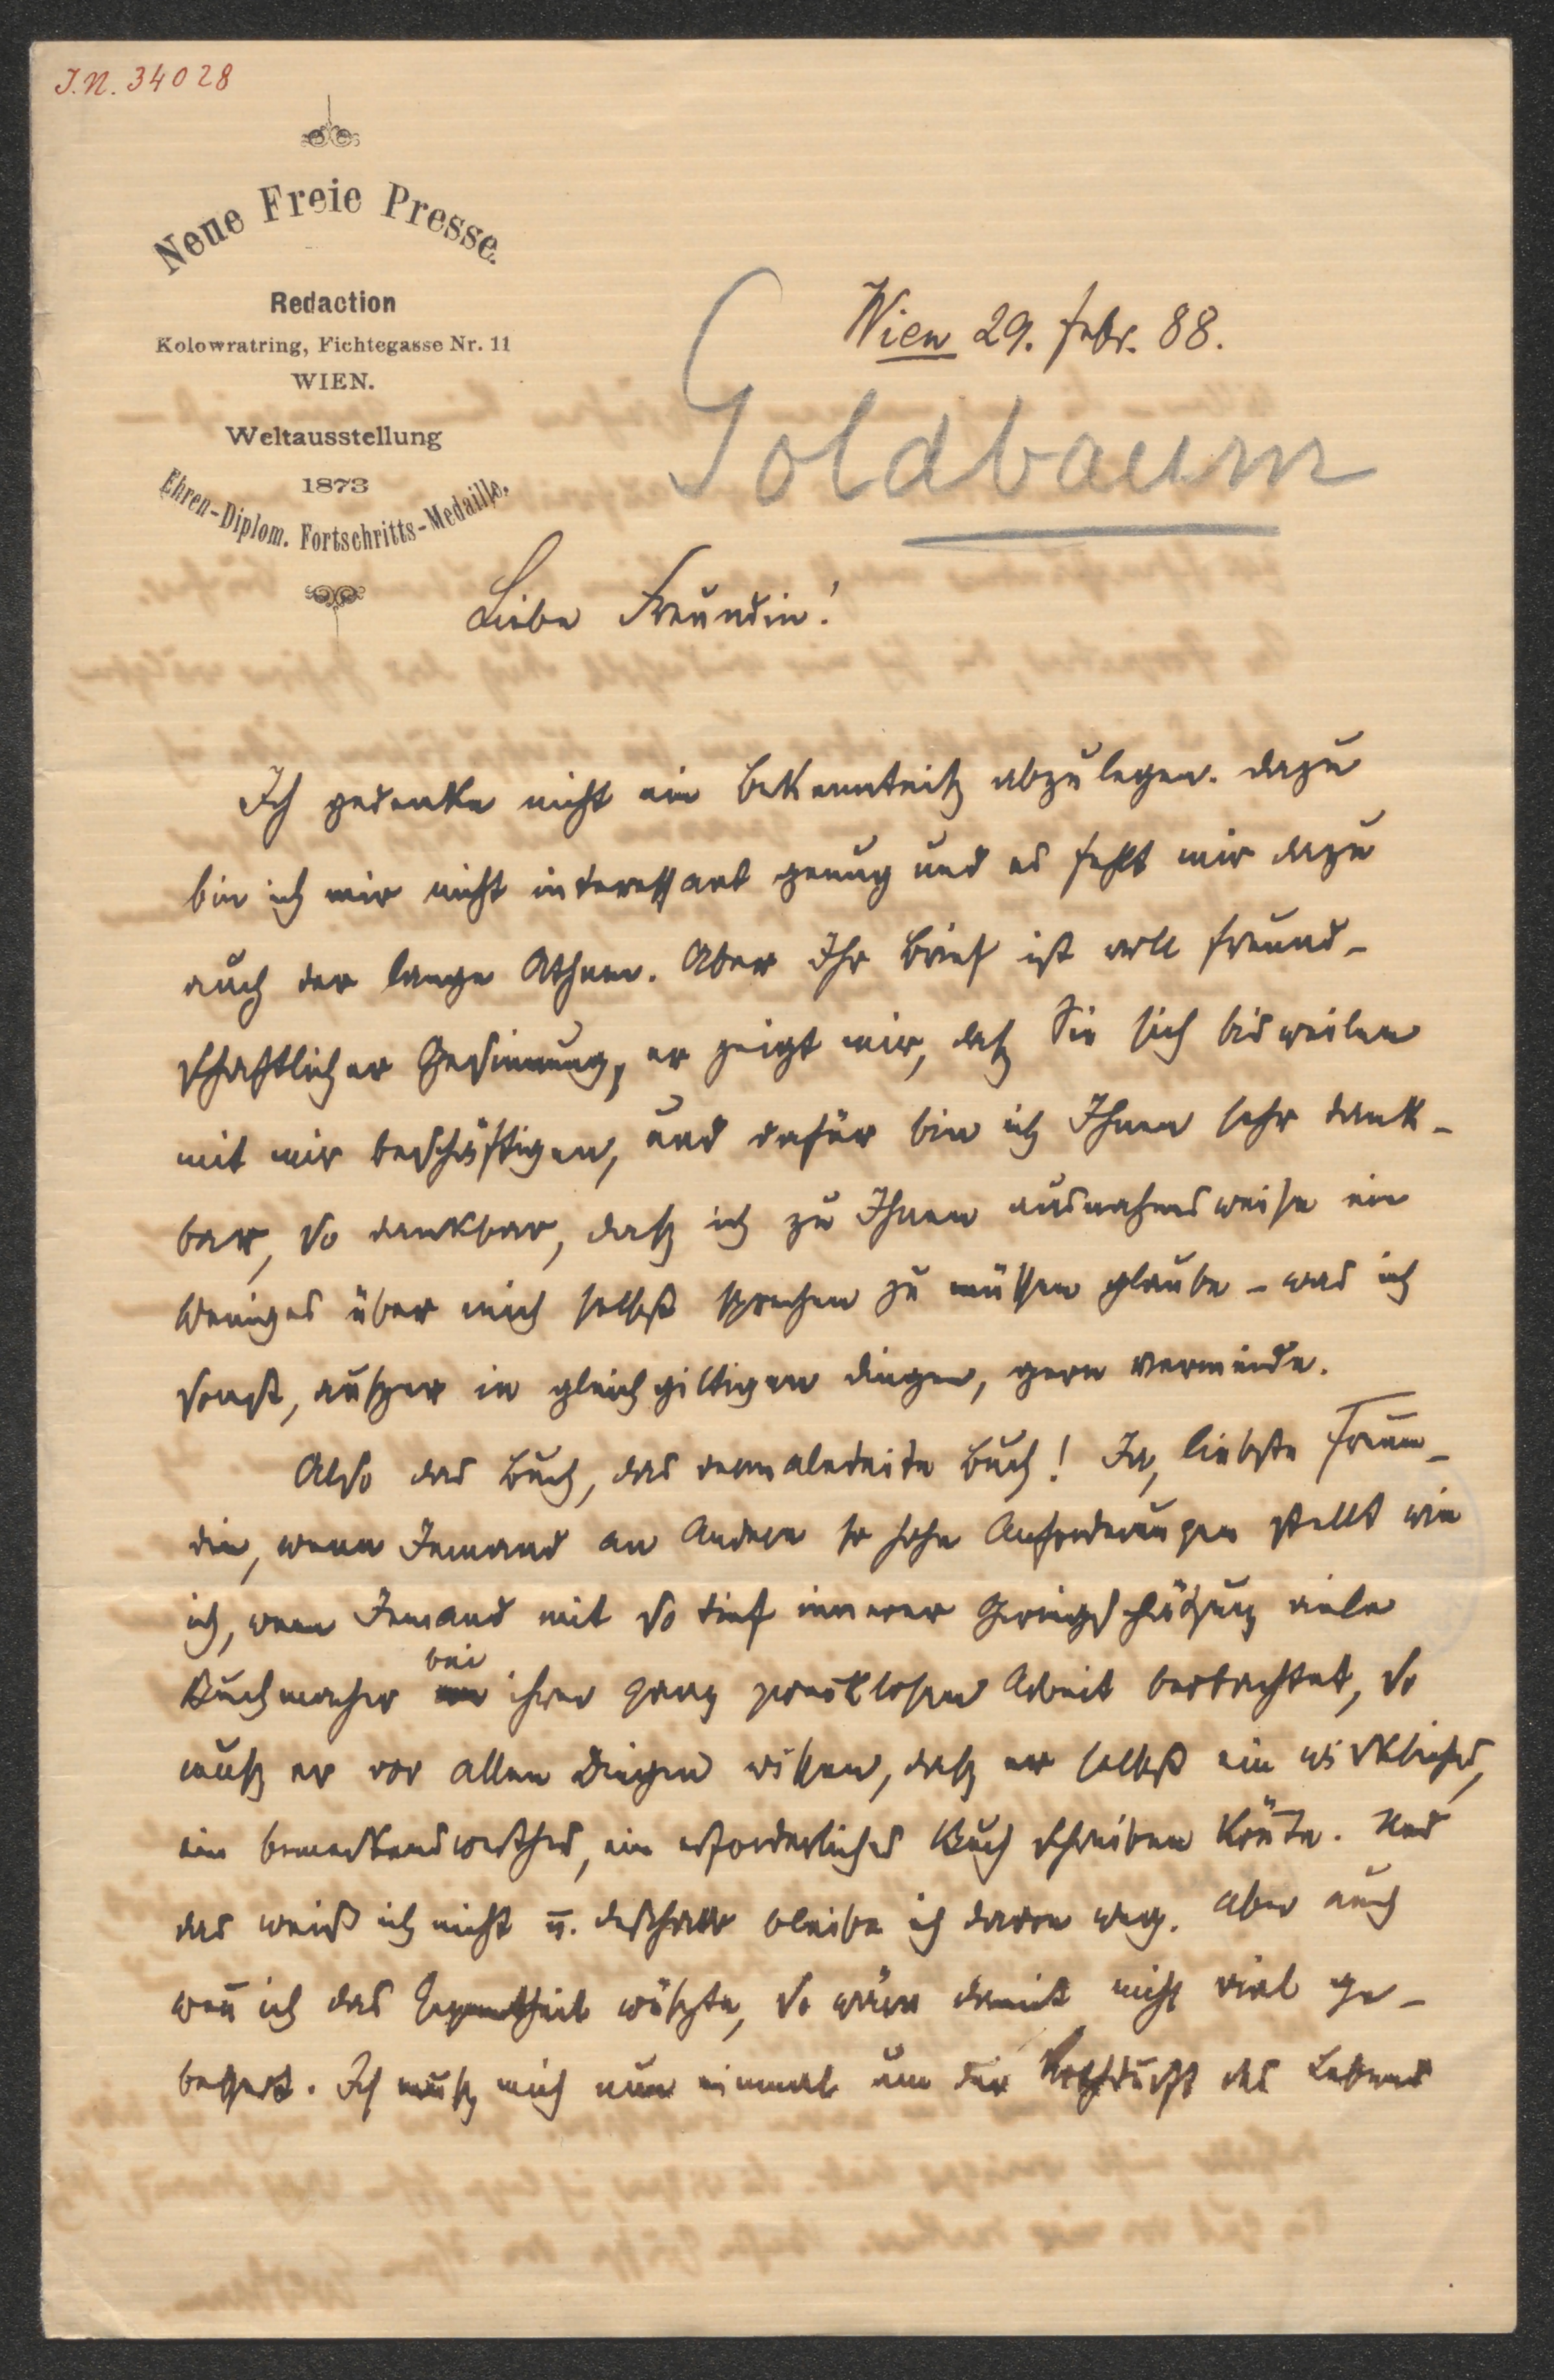 J.N. 34028
Neue Freie Presse.
Redaction
Kolowratring, Fichtegasse Nr. 11
WIEN.
Weltausstellung
1873
Ehren-Diplom. Fortschritts-Medaille.
Wien 29. Febr. 88.
Goldbaum
Liebe Freundin!
Ich gedenke nicht ein Bekenntnitz abzulegen. Dazu
bin ich mir nicht interessant genug und es fehlt mir dazu
auch der lange Athem. Aber Ihr Brief ist voll freund-
schaftlicher Gesinnung, er zeigt mir, dasz Sie sich bisweilen
mit mir beschäftigen, und dafür bin ich Ihnen sehr dank-
bar, so dankbar, dasz ich zu Ihnen ausnahmsweise ein
Weniges über mich selbst sprechen zu müssen glaube – was ich
sonst, auszer in gleichgiltigen Dingen, gern vermeide.
Also das Buch, das vermaledeite Buch! Ja, liebste Freun-
din, wenn Jemand an Andere so hohe Anforderungen stellt wie
ich, wenn Jemand mit so tief innerer Geringschätzung viele
Buchmacher bei ihrer ganz zwecklosen Arbeit betrachtet, so
musz er vor allen Dingen wissen, dasz er selbst ein wirkliches,
ein bemerkenswerthes, ein erforderliches Buch schreiben kön̄te. Und
das weiß ich nicht u. deszhalb bleibe ich davon weg. Aber auch
wen̄ ich das Gegentheil wüszte, so wäre damit nicht viel ge-
bessert. Ich musz mich nun einmal um die Nothdurft des Lebens